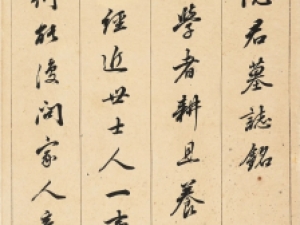 君墓誌銘
學者耕且養
經近世士人一
能讀問家人